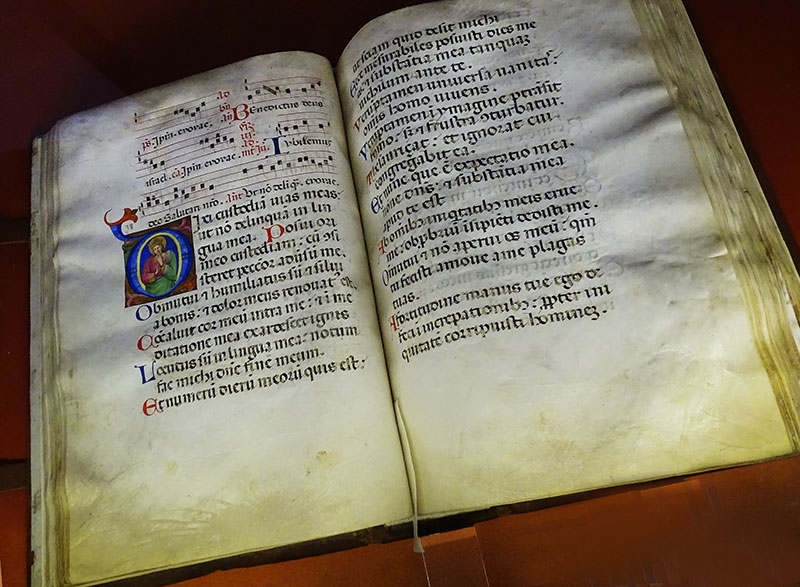 BEnedictus deus
euouae.
israel. euouae.
deo Salutari nr̃o. Ut nõ delĩq̃. euouae.
DIxi custodiã uias meas:
ut nõ delinquã in lin
gua mea. Posui ori
meo custodiam: cũ cõ
sisteret peccõr aduersũ me.
Obmutui et humiliatus sũ et silui
a bonis: et dolor meus renouatus est.
Cõcaluit cor meũ intra me: et ĩ me
ditatione mea exardescet ignis
Locutus sũ in lingua mea: notum
fac michi dñe finẽ meum.
Et numerũ dierũ meorũ quis est:
ut sciam quid desit michi
Ecce mẽsurabiles posuisti dies me
os: et substãtia mea tanquaz
nichilum ante te.
Verũptamen uniuersa uanitas:
omnis homo uiuens.
Verũptamen ĩ ymagine ptrãsit
homo: sꝫ et frustra cõturbatur.
Thesauriçat: et ignorat cui
congregabit ea.
Et nunc que ẽ expectatio mea.
none dñs: et substãtia mea
apud te est
Ab omnibꝫ iniquitatibꝫ meis erue
me: obpbriũ insipiẽti dedisti me.
Obmutui et nõ aperui os meũ: qm̃
tu fecisti amoue a me plagas
tuas.
A fortitudine manus tue ego de
feci ĩ increpationibꝫ: ꝓpter ini
quitatẽ corripuisti hominez.